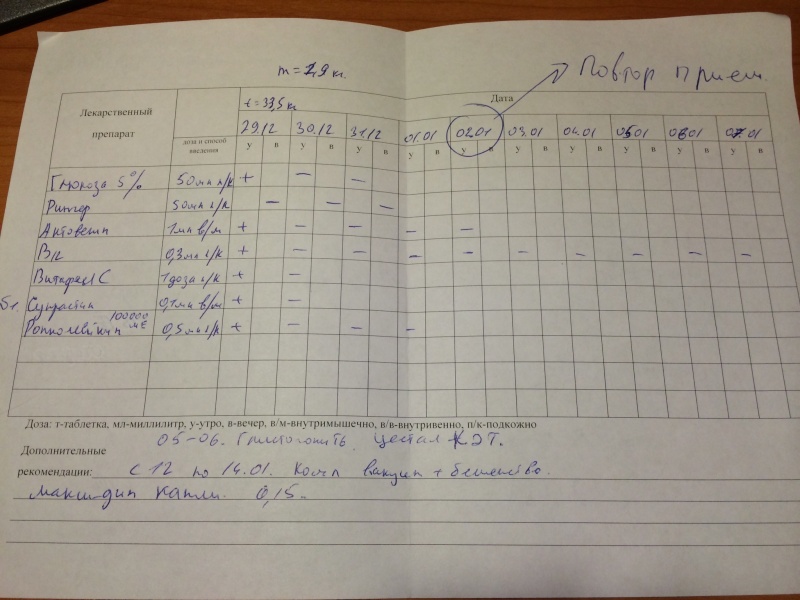 m = 1,9 кг.
Повтор прием.
Лекарственный препарат
доза и способ введения
Дата
t = 33,5
29.12 30.12 31.12 01.01 02.01 03.01 04.01 05.01 06.01 07.01
у в у в у в у в у в у в у в у в у в у в
Глюкоза 5% 50мл п/к + – –
Рингер 50мл п/к – – –
Актовегин 1мл в/м + – – – –
B12 0,3мл п/к + – – – – – – – – –
Витафел С 1доза п/к + –
Бл. Супрастин 0,1мл в/м + –
100000 МЕ
Ронколейкин 0,5мл п/к + – – –
Доза: т-таблетка, мл-миллилитр, у-утро, в-вечер, в/м-внутримышечно, в/в-внутривенно, п/к-подкожно
05-06. Глистогонить Цестал КЭТ.
Дополнительные
рекомендации: с 12 по 14.01. Компл вакцин + бешенство.
Максидин капли. 0,15